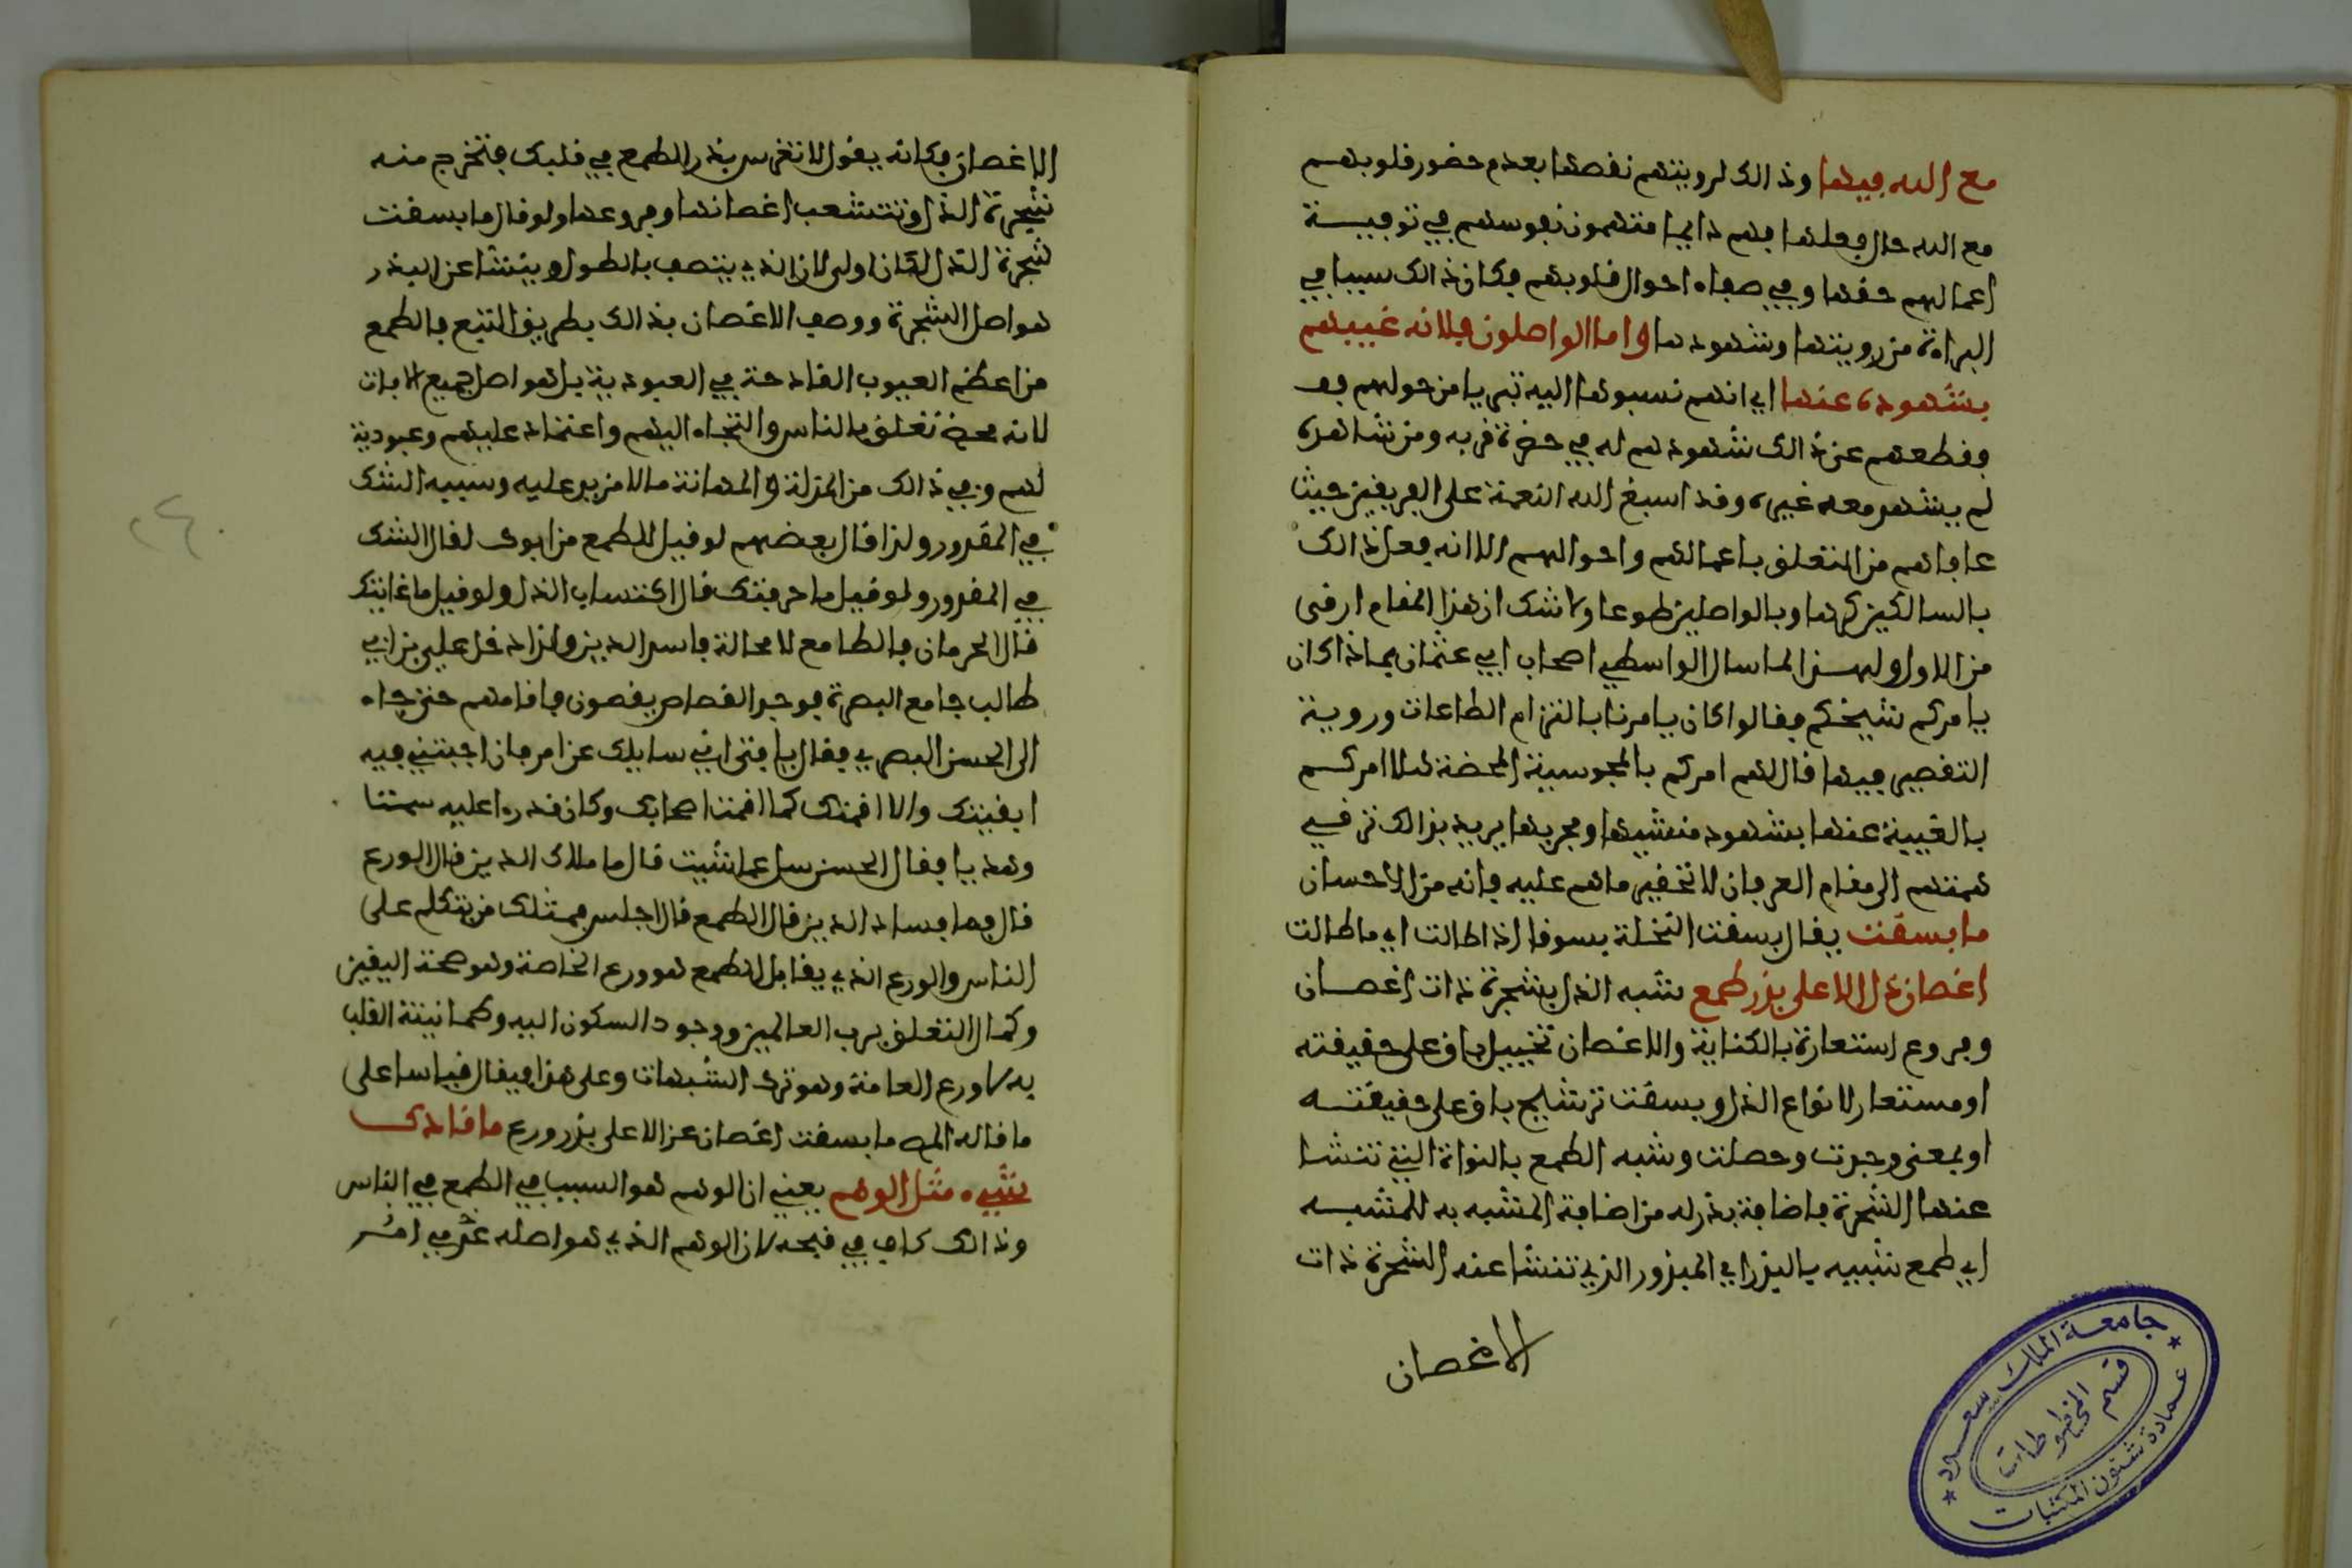 مع الله فيها وذالك لرويتهم نقصها بعدم حضور قلوبهم
مع الله حال فعلها فهم دايما متهمون نفوسهم في توفيـــة
اعمالهم حقها وفي صفاء احوال قلوبهم فكان ذالك سببا في
البراءة من رويتها وشهودها واما الواصلون فلانه غيبهم
بشهوده عنها اي انهم نسبوها اليه تبريا من حولهم فـ
فقطعهم عن ذالك شهودهم له في حضرة قربه ومن شاهده
لم يشهد معه غيره وقد اسبغ الله النعمة على الفريقين حيث
عافاهم من التعلق باعمالهم واحوالهم الا انه فعل ذالك
بالسالكين كرها وبالواصلين طوعا ولا شك ان هذا المقام ارقى
من الاول ولهذا لما سال الواسطي اصحاب ابي عثمان بماذا كان
يامركم شيخكم فقالوا كان يامرنا بالتزام الطاعات وروية
التقصير فيها قال لهم امركم بالمجوسية المحضة هلا امركم
بالغيبة عنها بشهود منشيها ومجريها يريد بذالك ترقي
همتهم الى مقام العرفان لا تحقير ما هم عليه فانه من الاحسان
ما بسقت يقال بسقت النخلة بسوقا اذا طالت اي ما طالت
اغصان ذل الا على بذر طمع شبه الذل بشجرة ذات اغصان
وفروع استعارة بالكناية والاغصان تخييل باق على حقيقته
او مستعار لانواع الذل وبسقت ترشيح باق على حقيقتـه
او بمعنى وجدت وحصلت وشبه الطمع بالنواة التي تنشا
عنها الشجرة فاضافة بذر له من اضافة المشبه به للمشبـه
اي طمع شبيه بالبذر اي المبذور الذي تنشا عنه الشجرة ذات
الاغصان
الاغصان فكانه يقول لا تغرس بذر الطمع في قلبك فتخرج منه
شجرة الذل وتتشعب اغصانها وفروعها ولو قال ما بسقت
شجرة الذل لكان اولى لان الذي يتصف بالطول وينشا عن البذر
هو اصل الشجرة ووصف الاغصان بذالك بطريق التبع فالطمع
من اعظم العيوب القادحة في العبودية بل هو اصل جميع الافات
لانه محض تعلق بالناس والتجاء اليهم واعتماد عليهم وعبودية
لهم وفي ذالك من المذلة والمهانة ما لا مزيد عليه وسببه الشك
في المقدور ولذا قال بعضهم لو قيل للطمع من ابوك لقال الشك
في المقدور ولو قيل ما حرفتك قال اكتساب الذل ولو قيل ما غايتك
قال الحرمان فالطامع لا محالة فاسد الدين ولذا دخل علي بن ابي
طالب جامع البصرة فوجد القصاص يقصون فاقامهم حتى جاء
الى الحسن البصري فقال يا فتى اني سايلك عن امر فان اجبتني فيه
ابقيتك والا اقمتك كما اقمت اصحابك وكان قد راا عليه سمتا
وهديا فقال الحسن سل عما شيت قال ما ملاك الدين قال الورع
قال فما فساد الدين قال الطمع قال اجلس فمثلك من يتكلم على
الناس والورع الذي يقابل الطمع هو ورع الخاصة وهو صحة اليقين
وكمال التعلق برب العالمين ووجود السكون اليه وطمانينة القلب
به لا ورع العامة وهو ترك الشبهات وعلى هذا فيقال قياسا على
ما قاله المص ما بسقت اغصان عز الا على بذر ورع ما قادك
شيء مثل الوهم يعني ان الوهم هو السبب في الطمع في الناس
وذالك كاف في قبحه لان الوهم الذي هو اصله
جامعة الملك سعود
قسم المخطوطات
عمادة شئون المكتبات